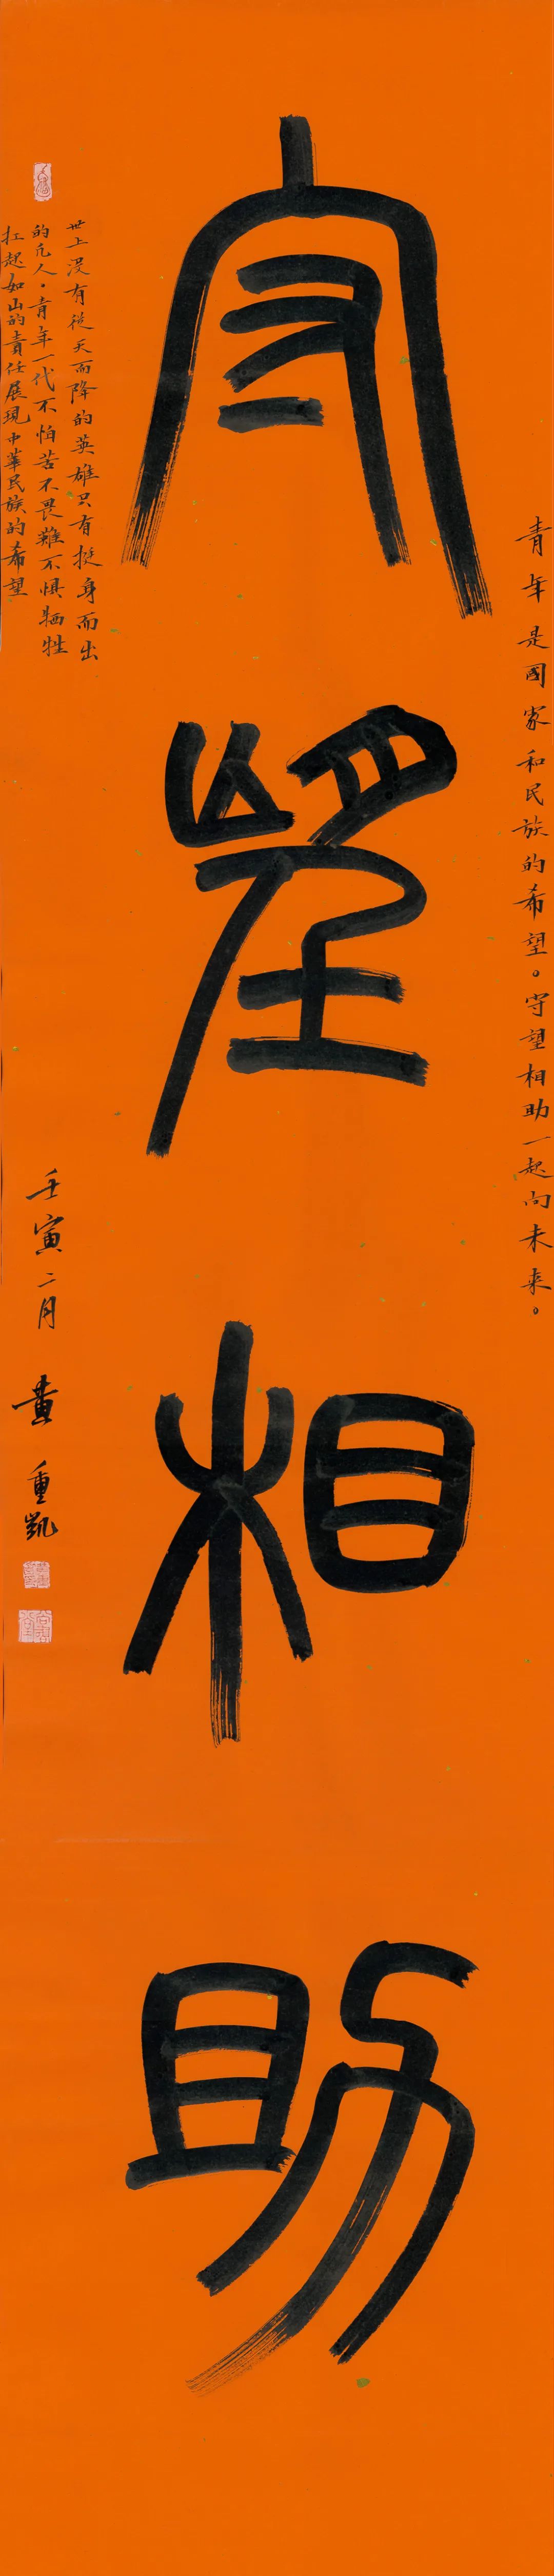 守望相助
青年是國家和民族的希望。守望相助一起向未来。
世上没有從天而降的英雄只有挺身而出
的凡人。青年一代不怕苦不畏難不惧牺牲
扛起如山的責任展現中華民族的希望
壬寅二月 黄重凯